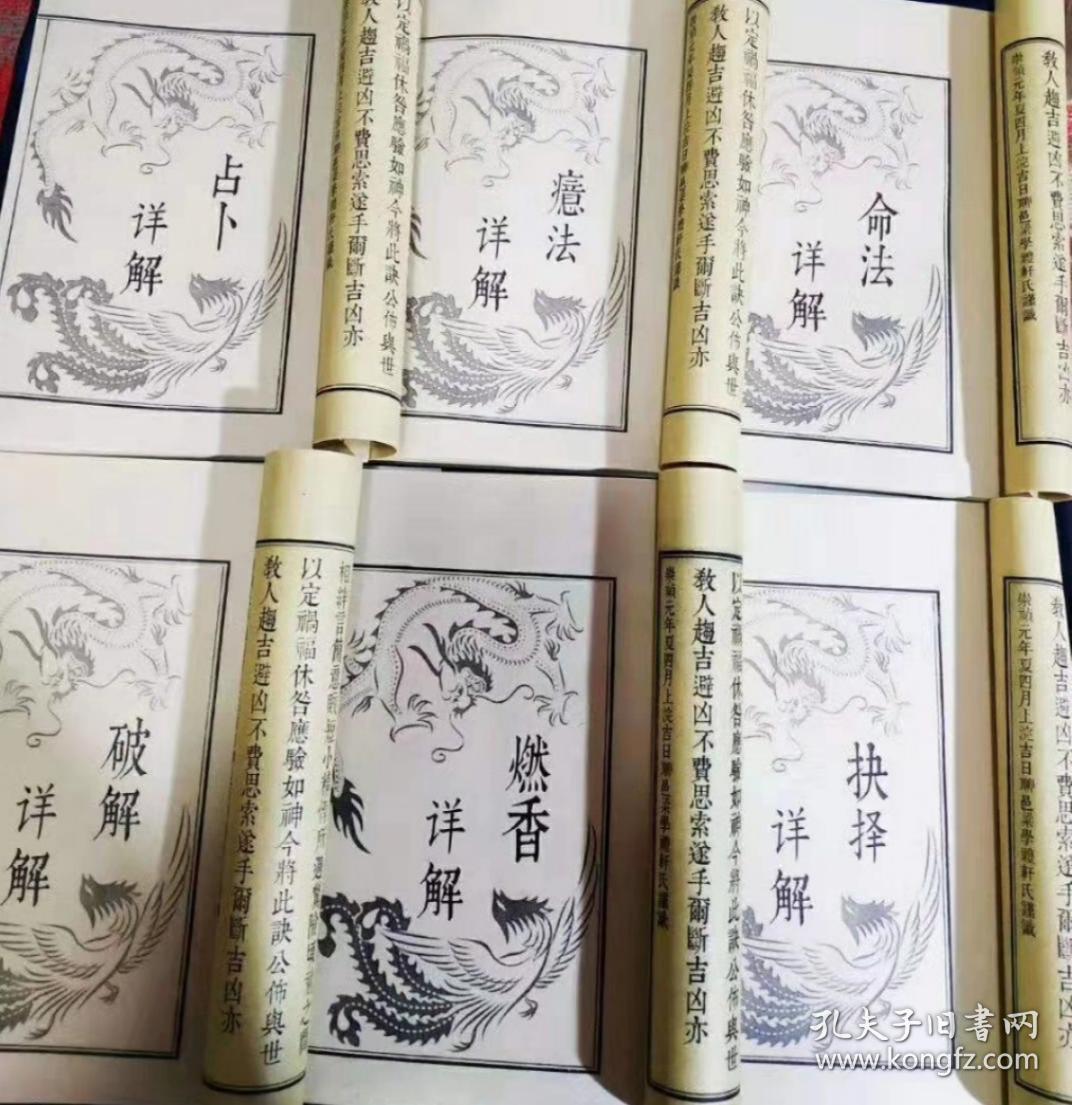 占卜
详解
以定禍福休咎應驗如神今將此訣公佈與世
教人趨吉避凶不費思索遂手爾斷吉凶亦
癔法
详解
以定禍福休咎應驗如神今將此訣公佈與世
教人趨吉避凶不費思索遂手爾斷吉凶亦
命法
详解
教人趨吉避凶不費思索遂手爾斷吉凶亦
崇禎元年夏四月上浣吉日聊邑梁學禮軒氏謹識
破解
详解
以定禍福休咎應驗如神今將此訣公佈與世
教人趨吉避凶不費思索遂手爾斷吉凶亦
燃香
详解
以定禍福休咎應驗如神今將此訣公佈與世
教人趨吉避凶不費思索遂手爾斷吉凶亦
崇禎元年夏四月上浣吉日聊邑梁學禮軒氏謹識
抉择
详解
教人趨吉避凶不費思索遂手爾斷吉凶亦
崇禎元年夏四月上浣吉日聊邑梁學禮軒氏謹識
孔夫子旧書网
www.kongfz.com